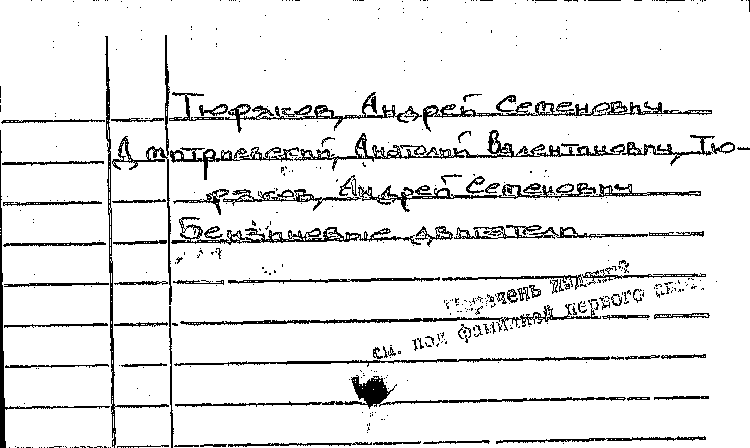 Тюряков, Андрей Семенович
Дмитриевский, Анатолий Валентинович, Тю-
ряков, Андрей Семенович
Бензиновые двигатели
Перечень изданий
см. под фамилией первого авт.